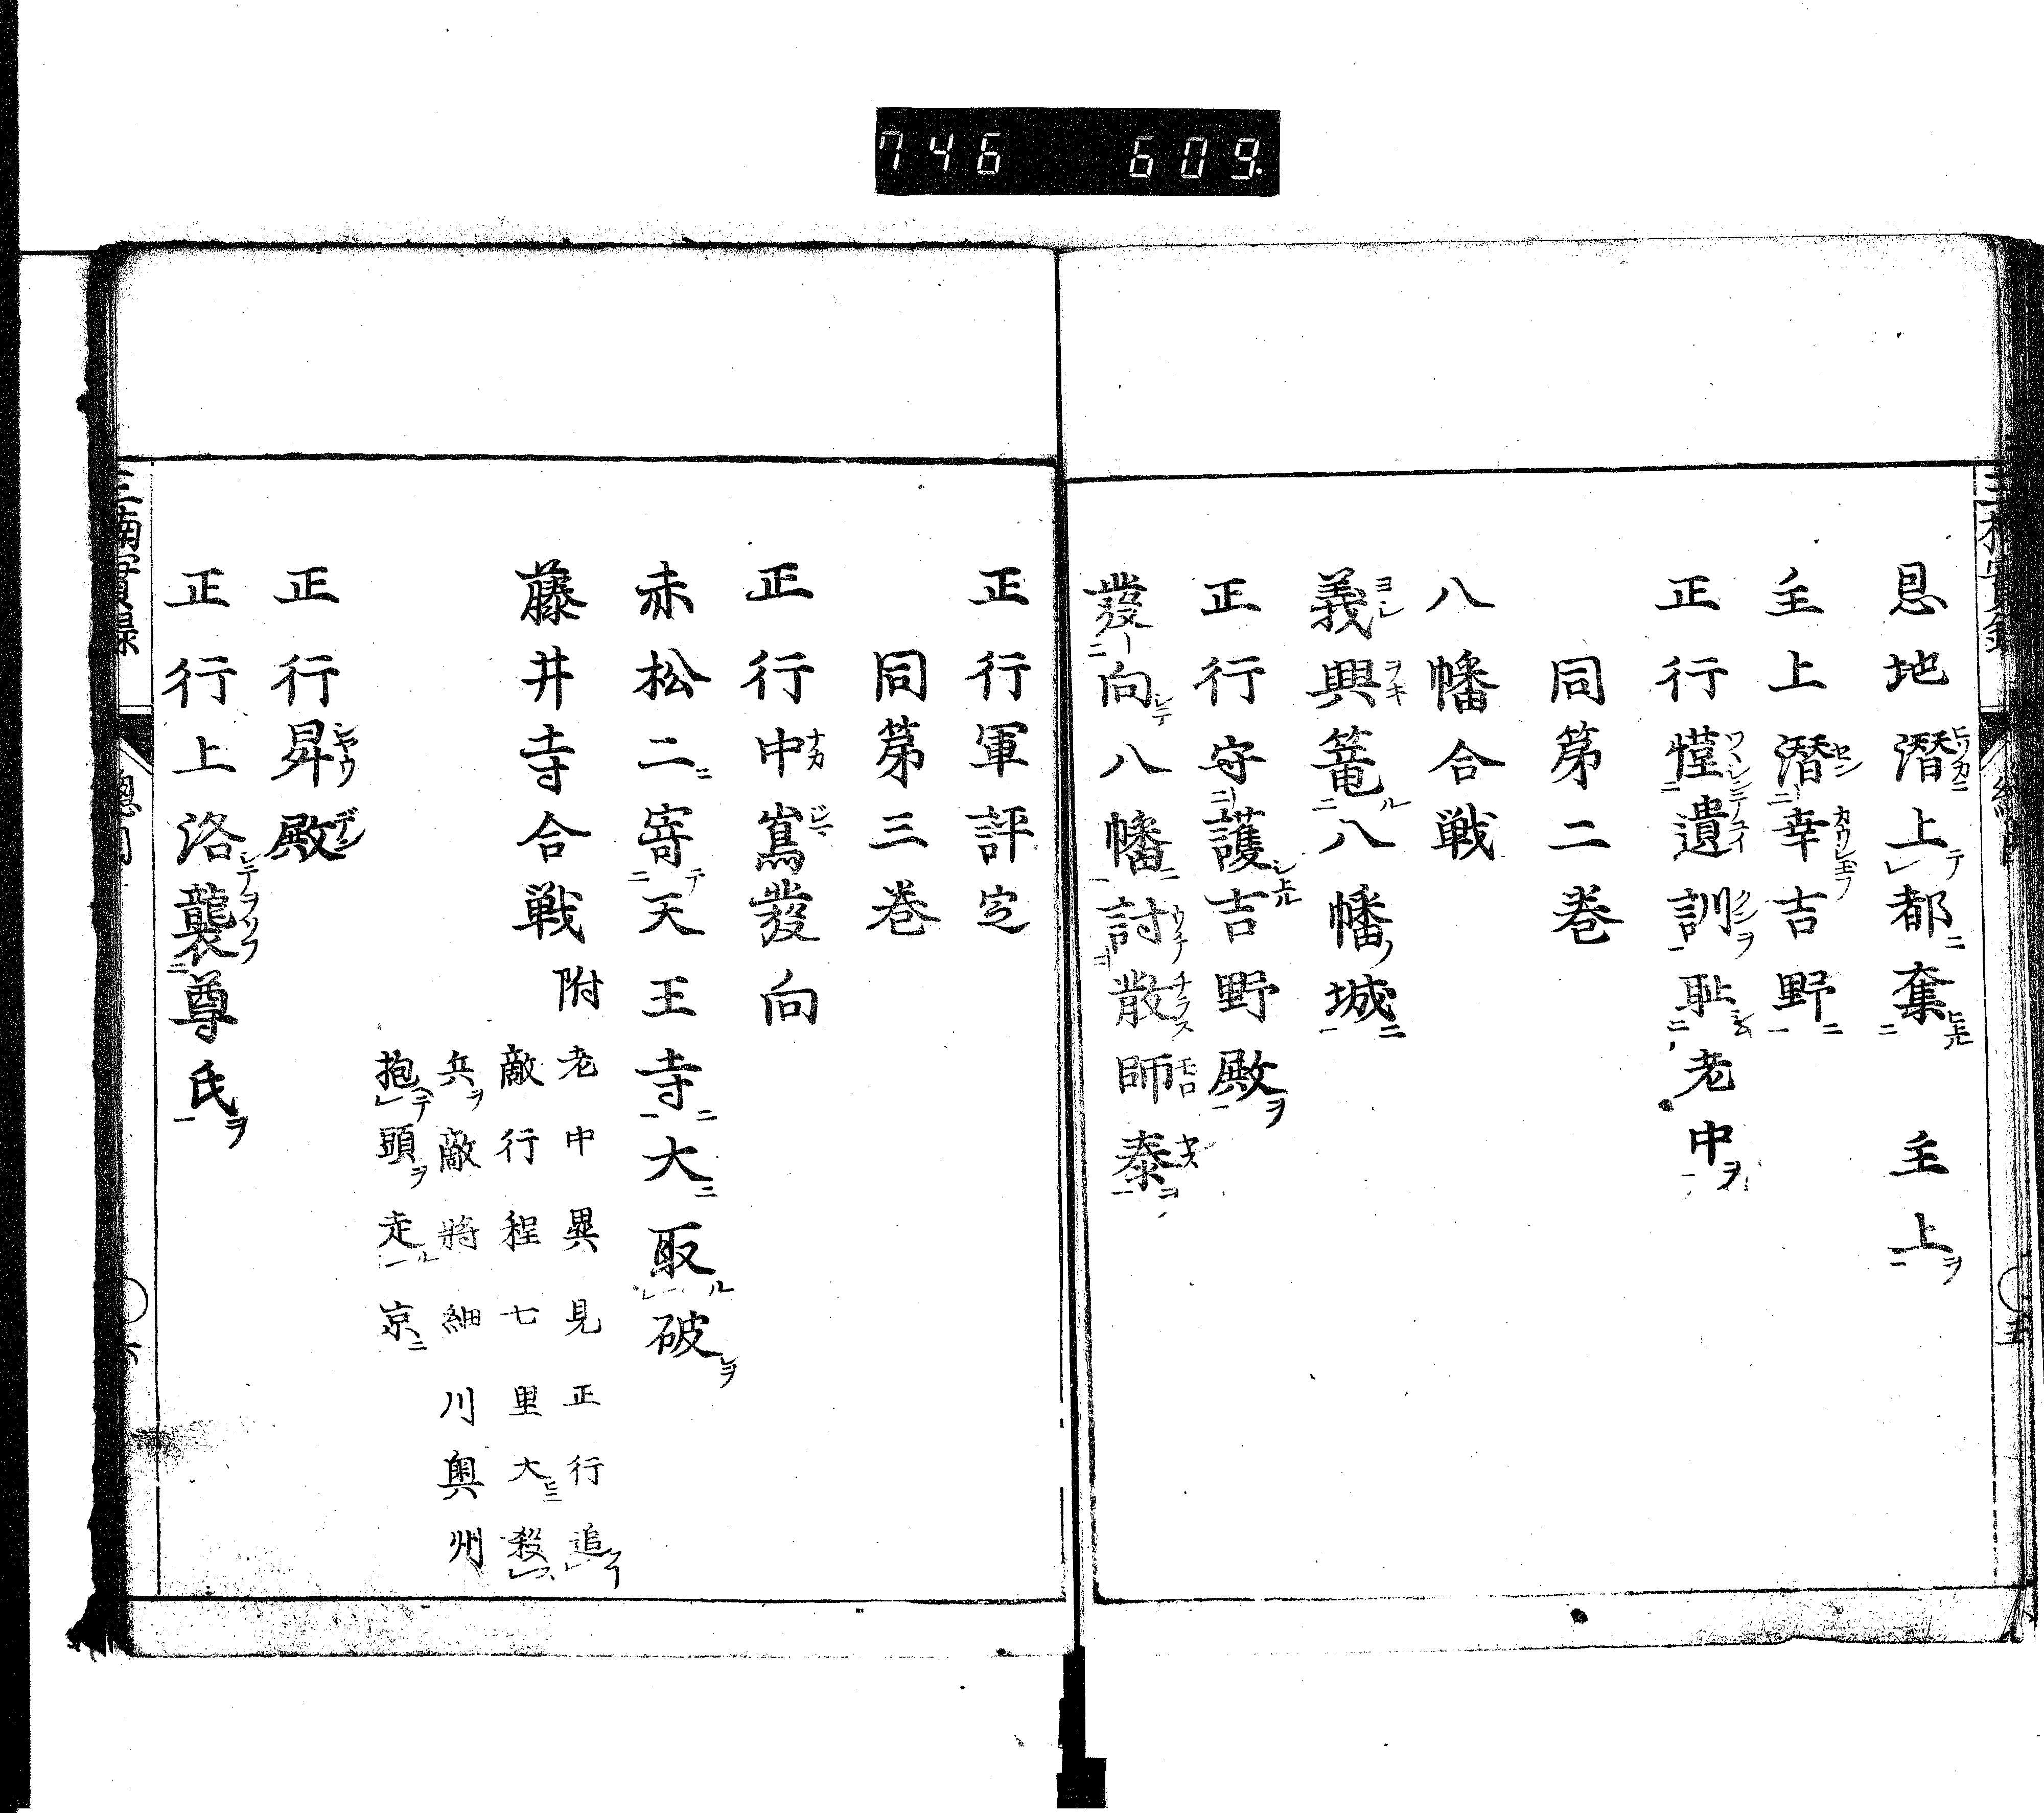 746 609.
恩地潜上都奪主上
主上潜幸吉野
正行惶遺訓耻老中
同第二巻
八幡合戦
義興篭八幡城
正行守護吉野殿
發向八幡討散師泰
正行軍評定
同第三巻
正行中嶌發向
赤松二寄天王寺大取破
藤井寺合戦 附
老中異見正行追
敵行程七里大殺
兵敵将細川奥州
抱頭走京
正行昇殿
正行上洛襲尊氏